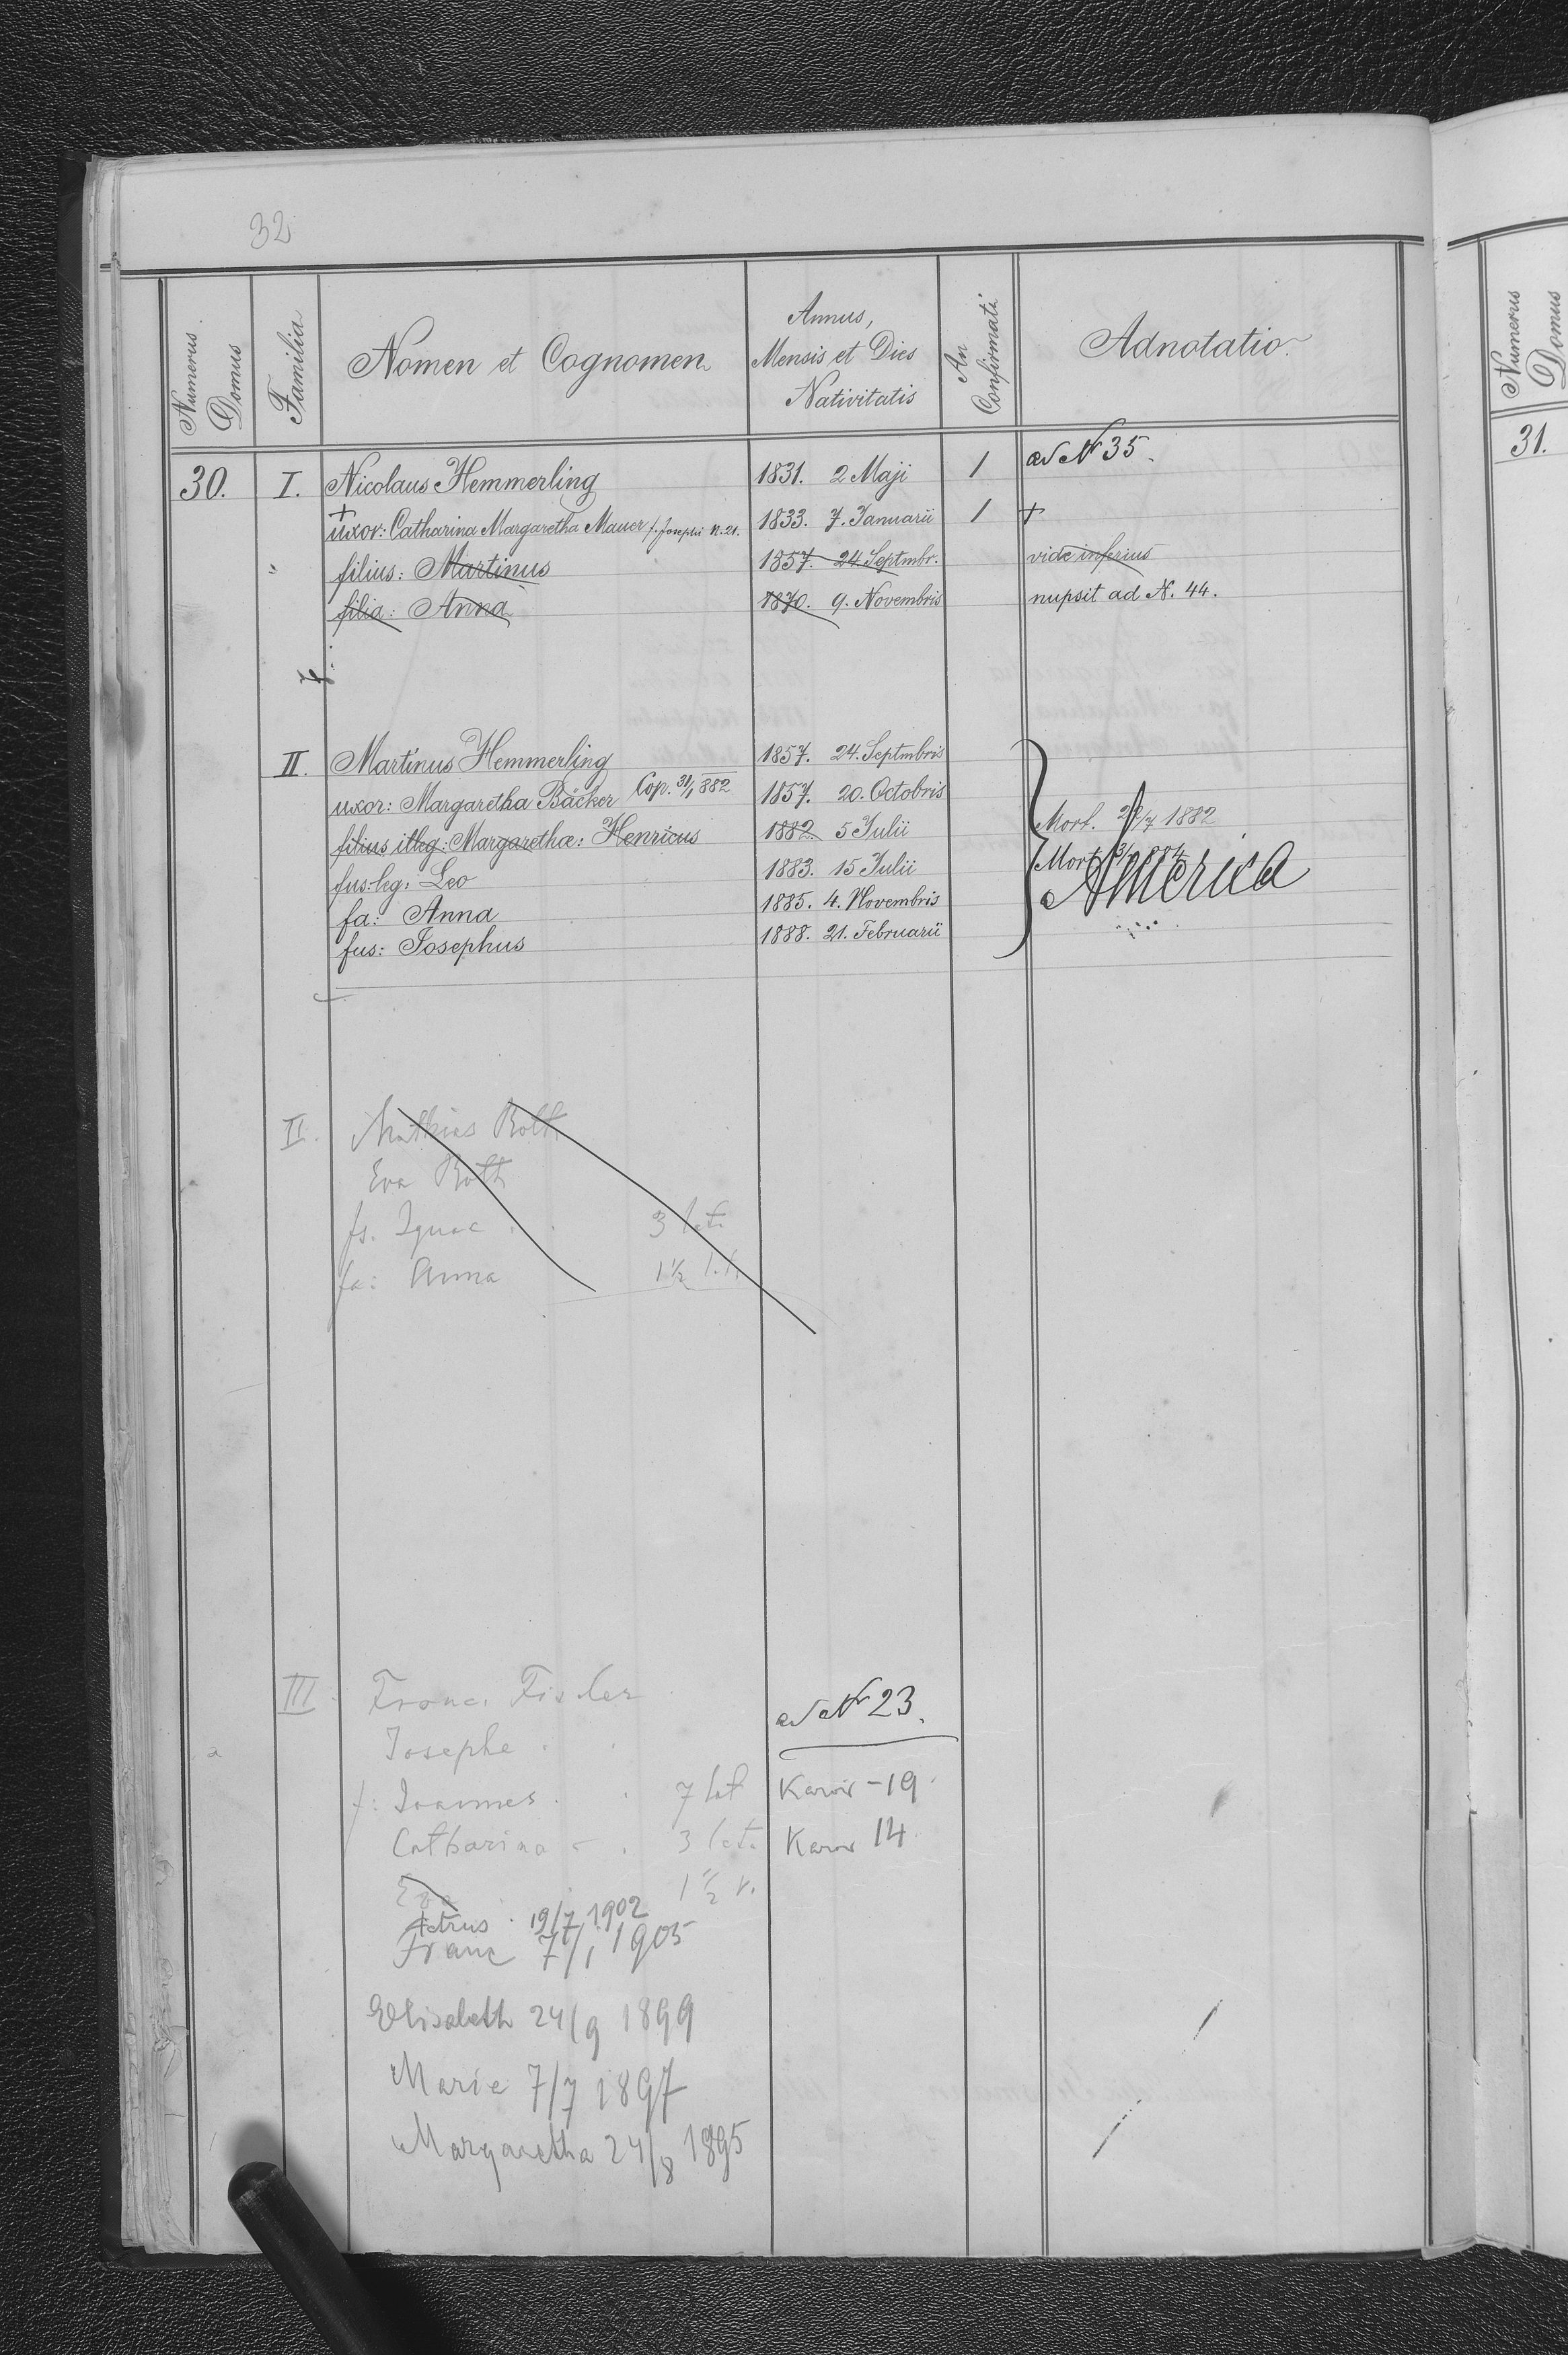 32
Numerus Domus | Familia | Nomen et Cognomen | Annus, Mensis et Dies Nativitatis | An Confirmati | Adnotatio.
30. I. Nicolaus Hemmerling 1831. 2 Maji 1 ad Nr 35.
+ uxor: Catharina Margaretha Mauer f. Josephi N. 21. 1833. 7. Januarii 1 +
filius: Martinus 1857. 24. Septmbr. vide inferius
filia: Anna 1870. 9. Novembris nupsit ad N. 44.
II. Martinus Hemmerling 1857. 24. Septmbris
uxor: Margaretha Bäcker Cop. 31/1 882 1857. 20. Octobris
filius illeg: Margarethæ: Henricus 1882. 5 Julii Mort. 7 1882
fus. leg: Leo 1883. 15 Julii Mort. 884
America
fa: Anna 1885. 4. Novembris
fus: Josephus 1888. 21. Februarii
II. Mathias Roth
Eva Roth
fs. Ignac 3 lata
fa: Anna 1 1/2
III Franc. Fisler ad Nr 23.
Josephe
f: Joannes 7 lat 19
Catharina 3 lata 14
Eva 1 1/2 r.
Petrus 19/7 1902
Franc 7/1 1905
Elisabeth 24/9 1899
Marie 7/7 1897
Margaretha 24/8 1895
Numerus Domus
31.